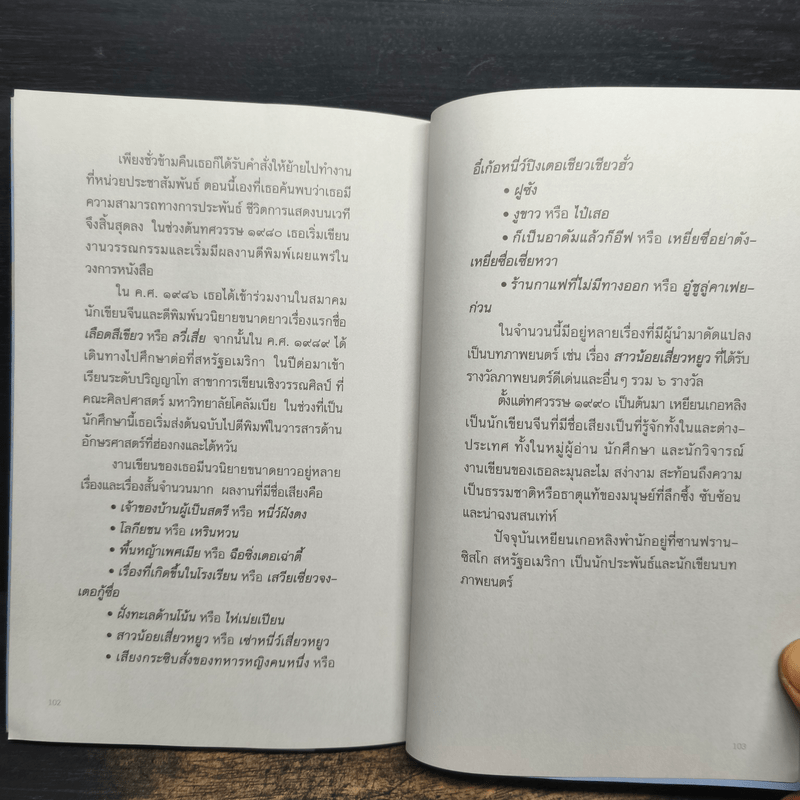 เพียงชั่วข้ามคืนเธอก็ได้รับคำสั่งให้ย้ายไปทำงาน
ที่หน่วยประชาสัมพันธ์ ตอนนี้เองที่เธอค้นพบว่าเธอมี
ความสามารถทางการประพันธ์ ชีวิตการแสดงบนเวที
จึงสิ้นสุดลง ในช่วงต้นทศวรรษ ๑๙๘๐ เธอเริ่มเขียน
งานวรรณกรรมและเริ่มมีผลงานตีพิมพ์เผยแพร่ใน
วงการหนังสือ
ใน ค.ศ. ๑๙๘๖ เธอได้เข้าร่วมงานในสมาคม
นักเขียนจีนและตีพิมพ์นวนิยายขนาดยาวเรื่องแรกชื่อ
เลือดสีเขียว หรือ ลวี่เสี่ย จากนั้นใน ค.ศ. ๑๙๘๙ ได้
เดินทางไปศึกษาต่อที่สหรัฐอเมริกา ในปีต่อมาเข้า
เรียนระดับปริญญาโท สาขาการเขียนเชิงวรรณศิลป์ ที่
คณะศิลปศาสตร์ มหาวิทยาลัยโคลัมเบีย ในช่วงที่เป็น
นักศึกษานี้เธอเริ่มส่งต้นฉบับไปตีพิมพ์ในวารสารด้าน
อักษรศาสตร์ที่ฮ่องกงและไต้หวัน
งานเขียนของเธอมีนวนิยายขนาดยาวอยู่หลาย
เรื่องและเรื่องสั้นจำนวนมาก ผลงานที่มีชื่อเสียงคือ
• เจ้าของบ้านผู้เป็นสตรี หรือ หนี่ว์ฝังตง
• โลกียชน หรือ เหรินหวน
• พื้นหญ้าเพศเมีย หรือ ฉือซิ่งเตอเฉ่าตี้
• เรื่องที่เกิดขึ้นในโรงเรียน หรือ เสวียเซี่ยวจง-
เตอกู้ซื่อ
• ฝั่งทะเลด้านโน้น หรือ ไห่เน่ยเปียน
• สาวน้อยเสี่ยวหยูว หรือ เซ่าหนี่ว์เสี่ยวหยูว
• เสียงกระซิบสั่งของทหารหญิงคนหนึ่ง หรือ
102
อี๋เก้อหนี่ว์ปิงเตอเชียวเชียวฮั่ว
• ฝูซัง
• งูขาว หรือ ไป๋เสอ
• ก็เป็นอาดัมแล้วก็อีฟ หรือ เหยี่ยซื่อย่าตัง-
เหยี่ยซื่อเซี่ยหวา
• ร้านกาแฟที่ไม่มีทางออก หรือ อู๋ชูลู่คาเฟย-
ก่วน
ในจำนวนนี้มีอยู่หลายเรื่องที่มีผู้นำมาดัดแปลง
เป็นบทภาพยนตร์ เช่น เรื่อง สาวน้อยเสี่ยวหยูว ที่ได้รับ
รางวัลภาพยนตร์ดีเด่นและอื่นๆ รวม ๖ รางวัล
ตั้งแต่ทศวรรษ ๑๙๙๐ เป็นต้นมา เหยียนเกอหลิง
เป็นนักเขียนจีนที่มีชื่อเสียงเป็นที่รู้จักทั้งในและต่าง-
ประเทศ ทั้งในหมู่ผู้อ่าน นักศึกษา และนักวิจารณ์
งานเขียนของเธอละมุนละไม สง่างาม สะท้อนถึงความ
เป็นธรรมชาติหรือธาตุแท้ของมนุษย์ที่ลึกซึ้ง ซับซ้อน
และน่าฉงนสนเท่ห์
ปัจจุบันเหยียนเกอหลิงพำนักอยู่ที่ซานฟราน-
ซิสโก สหรัฐอเมริกา เป็นนักประพันธ์และนักเขียนบท
ภาพยนตร์
103